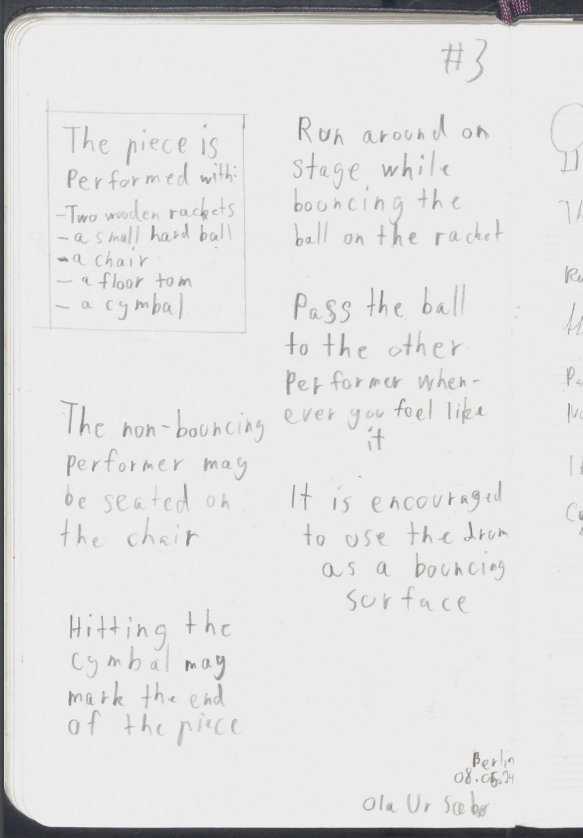 #3
The piece is
Performed with:
-Two wooden rackets
- a small hard ball
- a chair
- a floor tom
- a cymbal
The non-bouncing
performer may
be seated on
the chair
Hitting the
cymbal may
mark the end
of the piece
Run around on
stage while
bouncing the
ball on the racket
Pass the ball
to the other
Performer when-
ever you feel like
it
It is encouraged
to use the drum
as a bouncing
surface
Berlin
08.05.24
Ola Ur